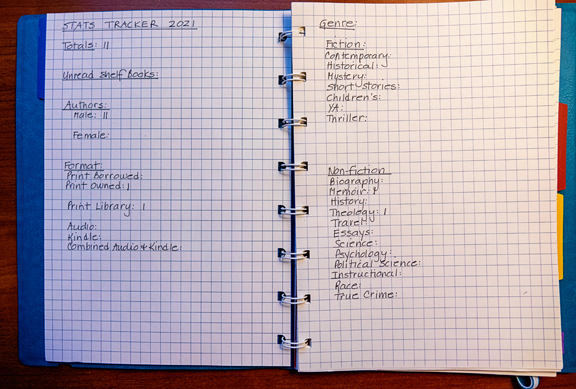 STATS TRACKER 2021
Totals: 11
Unread Shelf Books:
Authors:
Male: 11
Female:
Format:
Print Borrowed:
Print Owned: 1
Print Library: 1
Audio:
Kindle:
Combined Audio & Kindle:
Genre:
Fiction:
Contemporary:
Historical:
Mystery:
Short Stories:
Children's:
YA:
Thriller:
Non-fiction
Biography:
Memoir:
History:
Theology: 1
Travel:
Essays:
Science:
Psychology:
Political Science:
Instructional:
Race:
True Crime: